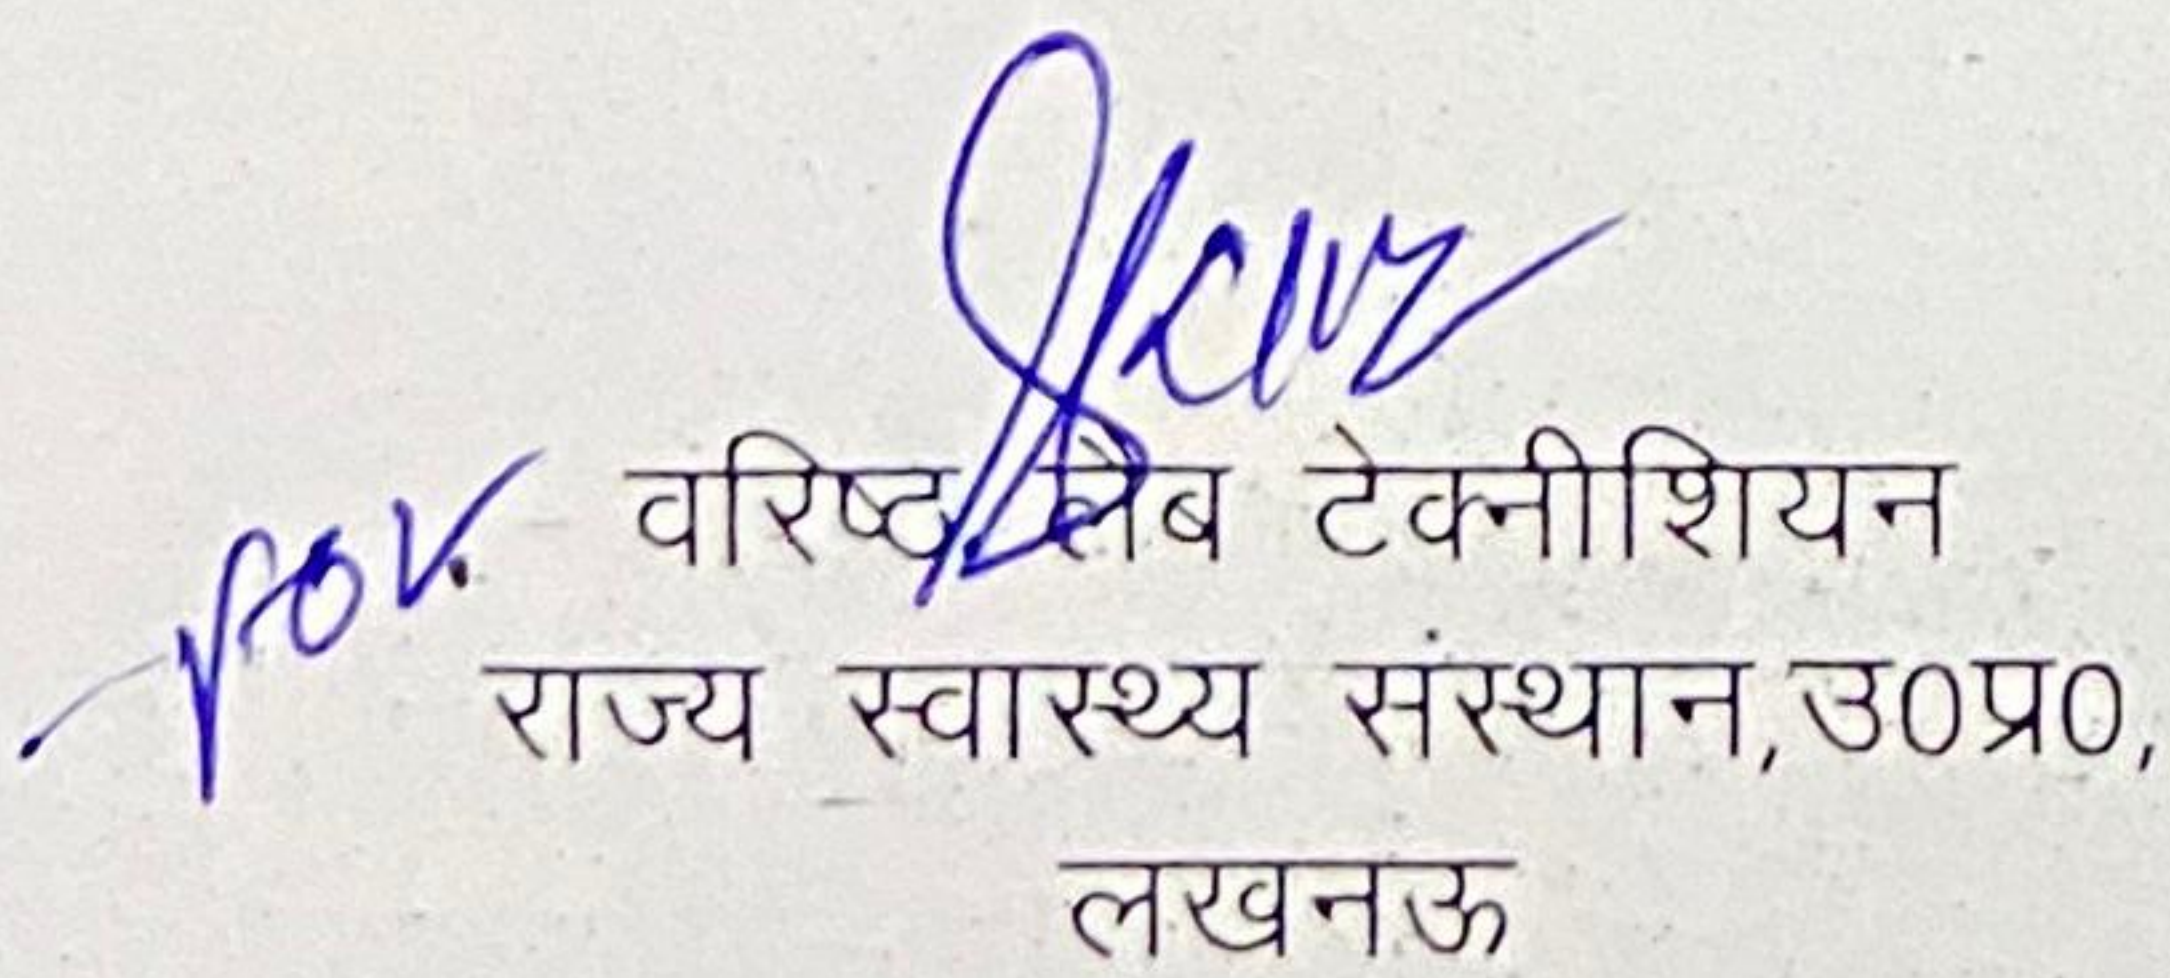 वरिष्ठ लैब टेक्नीशियन
राज्य स्वास्थ्य संस्थान,उ0प्र0,
लखनऊ